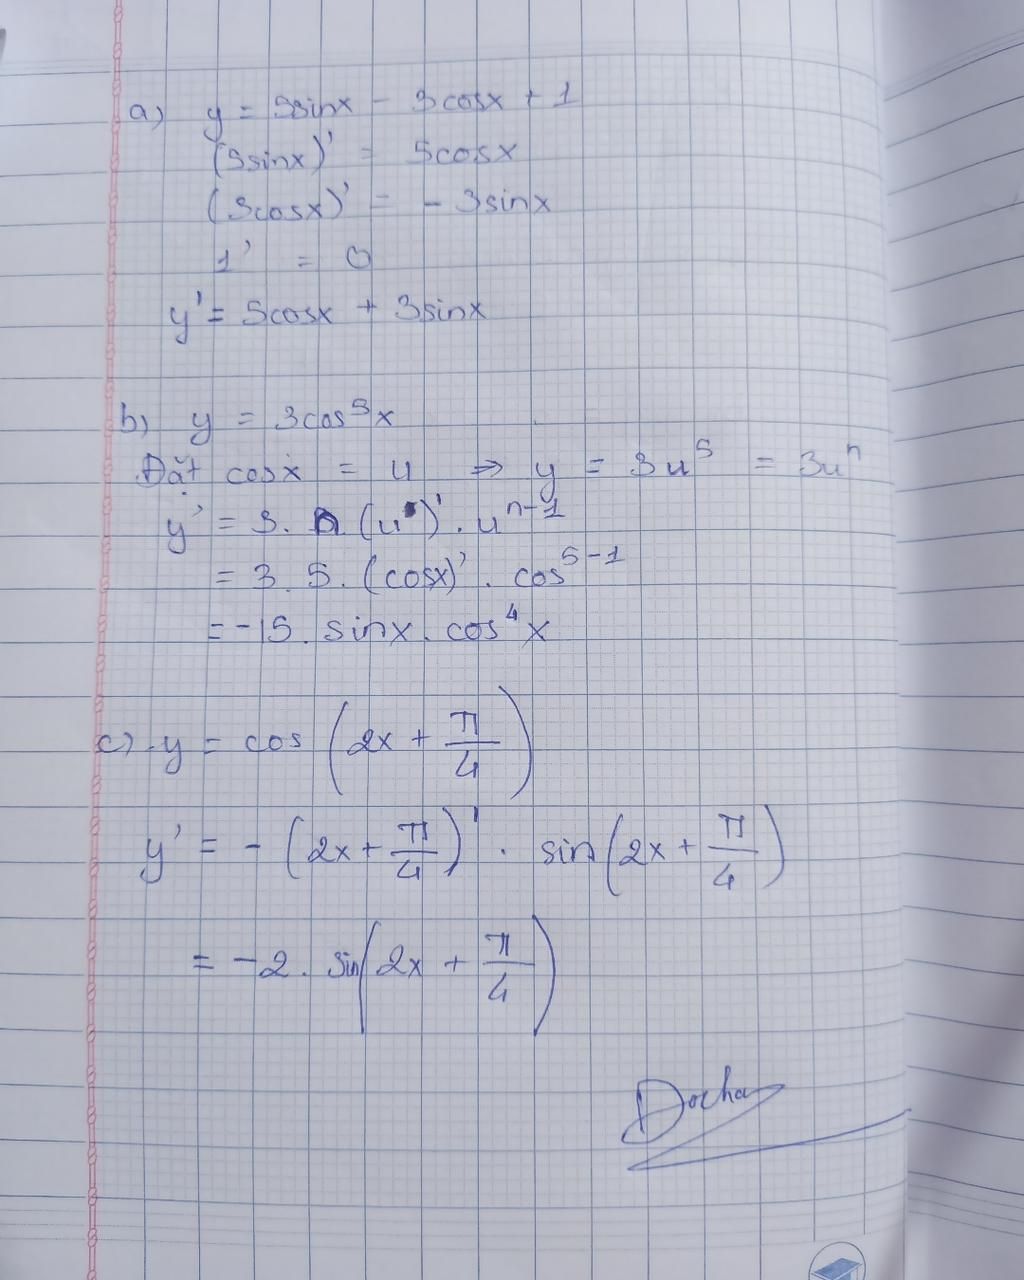 a) y = 5sinx - 3cosx + 1
(5sinx)' = 5cosx
(3cosx)' = - 3sinx
1' = 0
y' = 5cosx + 3sinx
b) y = 3cos⁵x
Đặt cosx = u ⇒ y = 3u⁵ = 3uⁿ
y' = 3. n (u)' . uⁿ⁻¹
= 3. 5. (cosx)' . cos⁵⁻¹
= -15. sinx. cos⁴x
c) y = cos (2x + π/4)
y' = - (2x + π/4)' . sin(2x + π/4)
= -2. sin(2x + π/4)